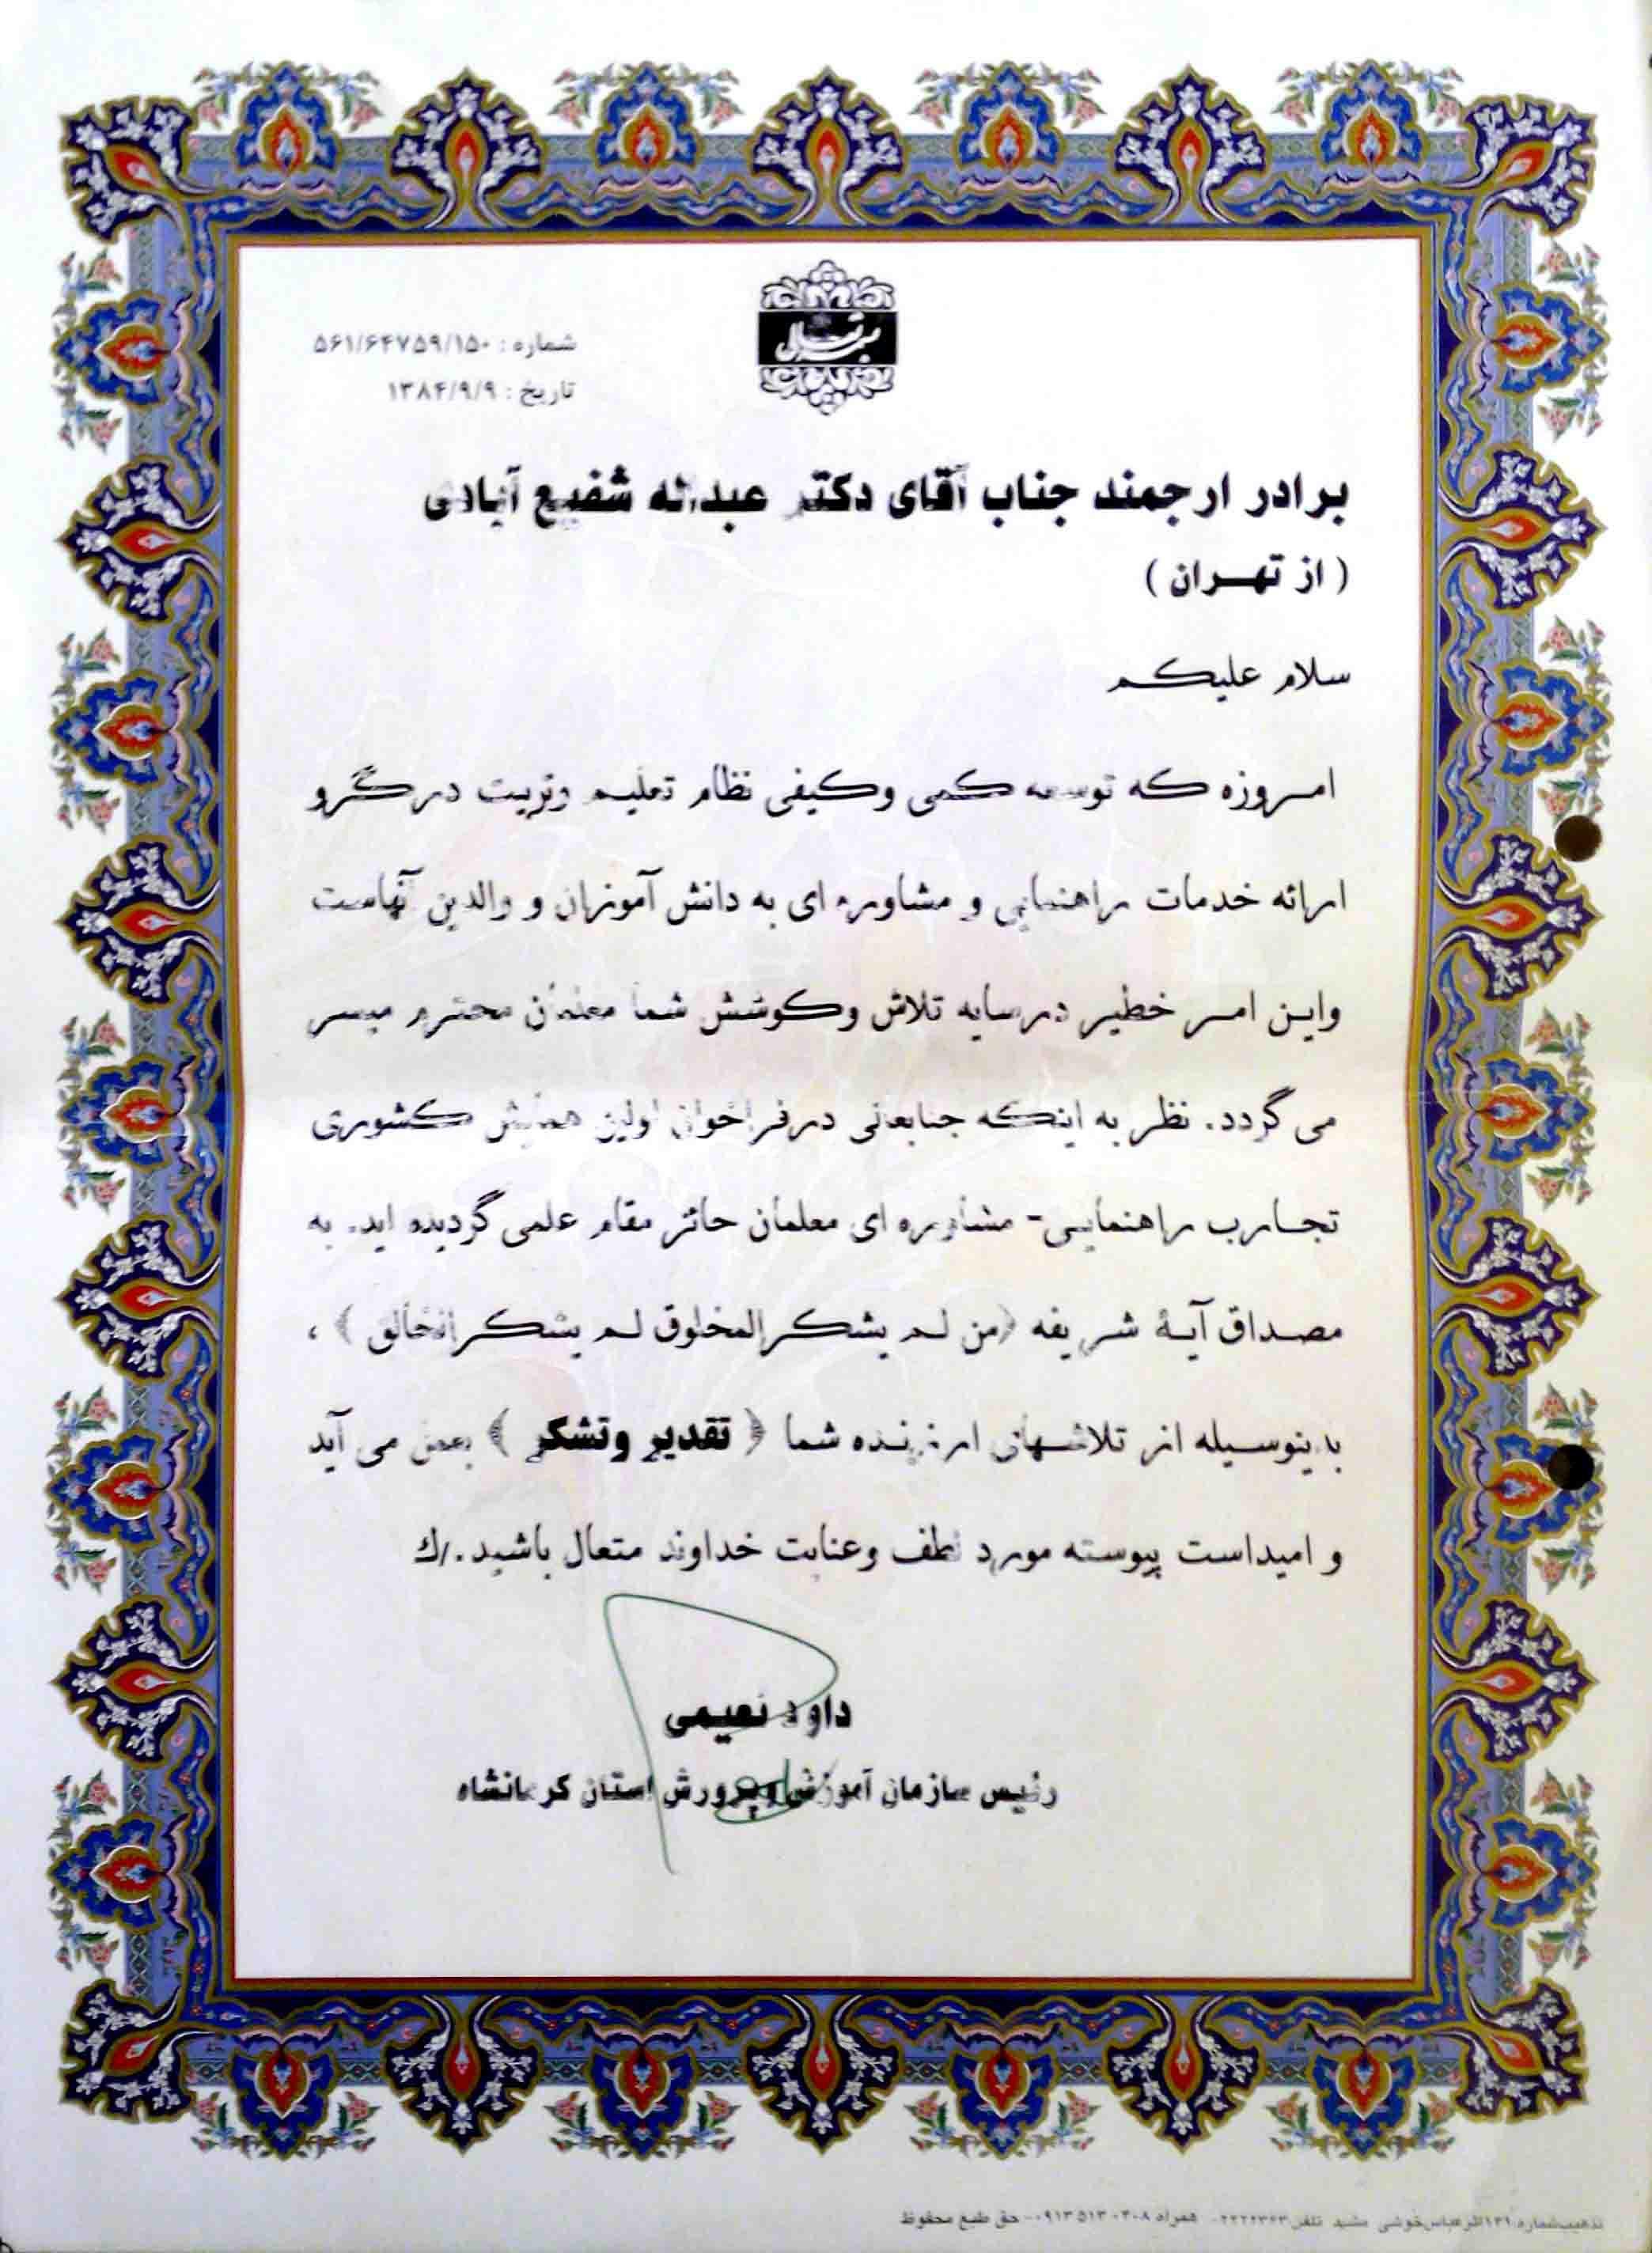 بسمه تعالی
شماره : ۵۶۱/۶۴۷۵۹/۱۵۰
تاریخ : ۱۳۸۴/۹/۹
برادر ارجمند جناب آقای دکتر عبداله شفیع آبادی
( از تهران )
سلام علیکم
امروزه که توسعه کمی وکیفی نظام تعلیم وتربیت درگرو
ارائه خدمات راهنمایی و مشاوره ای به دانش آموزان و والدین آنهاست
واین امر خطیر درسایه تلاش وکوشش شما معلمان محترم میسر
می گردد. نظر به اینکه جنابعالی درفراخوان اولین همایش کشوری
تجارب راهنمایی- مشاوره ای معلمان حائز مقام علمی گردیده اید. به
مصداق آیۀ شریفه ﴿من لم یشکرالمخلوق لم یشکرالخالق ﴾ ،
بدینوسیله از تلاشهای ارزنده شما ﴿ تقدیر وتشکر ﴾ بعمل می آید
و امیداست پیوسته مورد لطف وعنایت خداوند متعال باشید./ك
داود نعیمی
رئیس سازمان آموزش وپرورش استان کرمانشاه
تذهیب شماره ۱۳۱ اثر عباس خوشی مشهد تلفن همراه حق طبع محفوظ